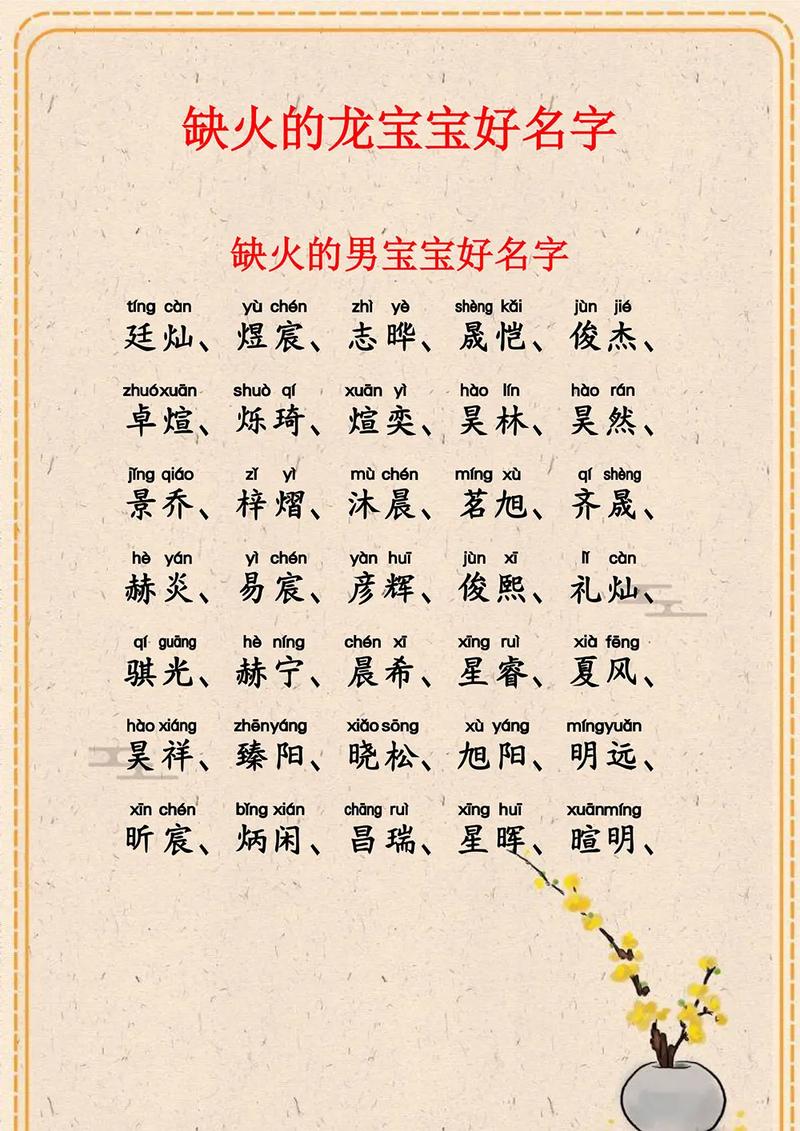 缺火的龙宝宝好名字
缺火的男宝宝好名字
tíng càn yù chén zhì yè shèng kǎi jùn jié
廷灿、煜宸、志晔、晟恺、俊杰、
zhuó xuān shuò qí xuān yì hào lín hào rán
卓煊、烁琦、煊奕、昊林、昊然、
jǐng qiáo zǐ yì mù chén míng xù qí shèng
景乔、梓熠、沐晨、茗旭、齐晟、
hè yán yì chén yàn huī jùn xī lǐ càn
赫炎、易宸、彦辉、俊熙、礼灿、
qí guāng hè níng chén xī xīng ruì xià fēng
骐光、赫宁、晨希、星睿、夏风、
hào xiáng zhēn yáng xiǎo sōng xù yáng míng yuǎn
昊祥、臻阳、晓松、旭阳、明远、
xīn chén bǐng xián chāng ruì xīng huī xuān míng
昕宸、炳闲、昌瑞、星晖、暄明、